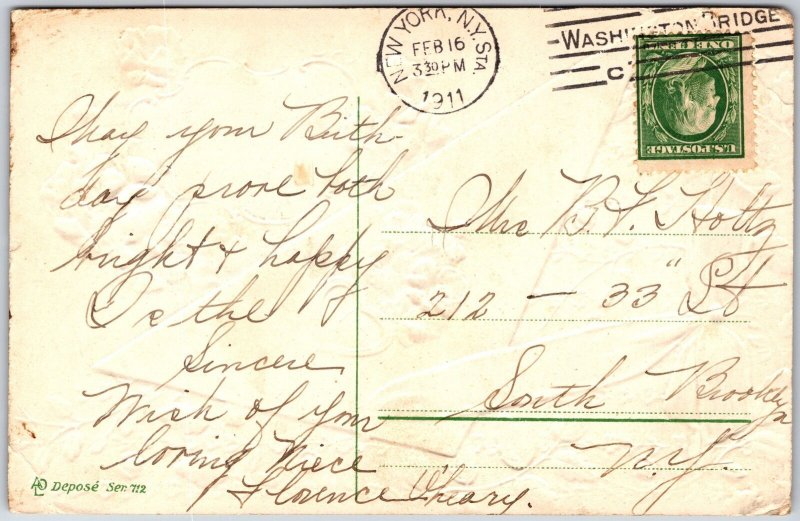 NEW YORK, N.Y. STA.
FEB 16
3 30 PM
1911
WASHINGTON BRIDGE
U.S. POSTAGE
ONE CENT
May your Birth-
day prove both
bright & happy
Is the
Sincere
Wish of your
loving Niece
Florence O'Leary.
Mrs B. F. Holtz
212 — 33" St
South Brooklyn
N.Y.
Deposé Ser. 712